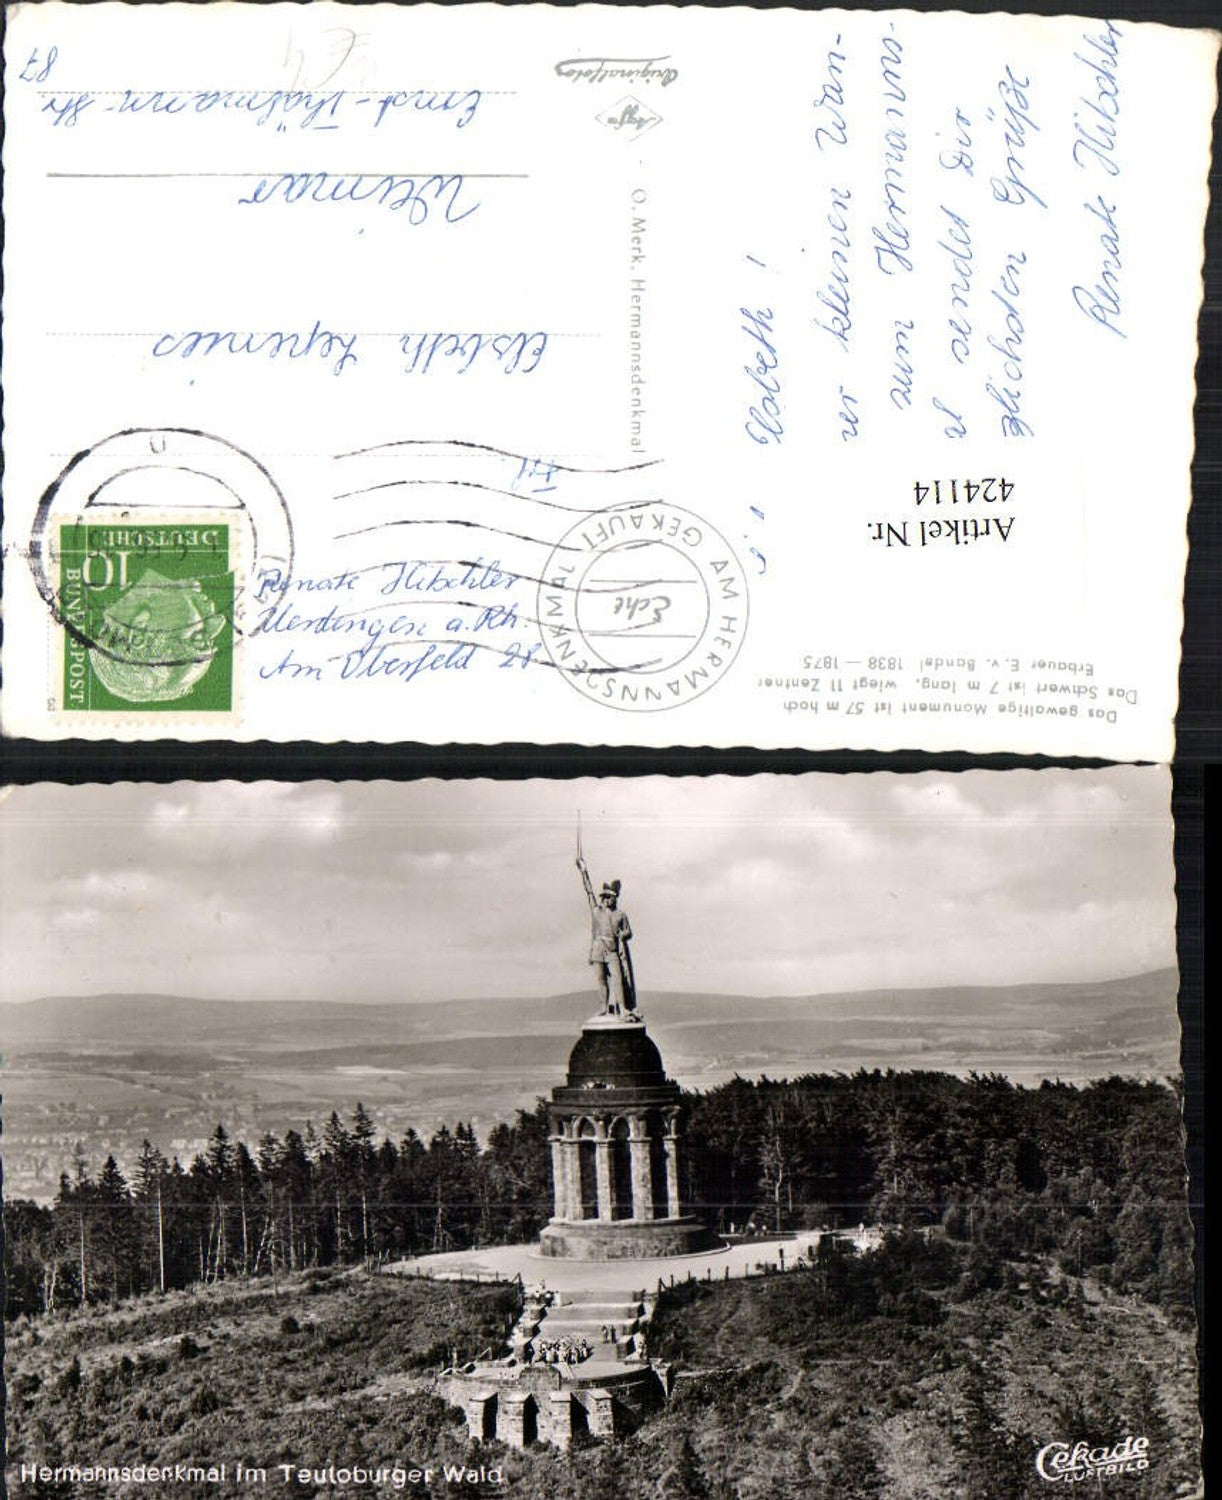 Elsbeth !
er kleinen Wan-
zum Hermanns-
l sendet Dir
zlichsten Grüße
Renate Hibchler
O. Merk. Hermannsdenkmal
Agfa
Originalfoto
Frl
Elsbeth Lepenies
Weimar
Ernst-Thälmann-Str.
87
DEUTSCHE
BUNDESPOST
10
Renate Hibchler
Uerdingen a. Rh.
Am Oberfeld 28
AM HERMANNSDENKMAL GEKAUFT
Echt
Artikel Nr.
424114
Das gewaltige Monument ist 57 m hoch
Das Schwert ist 7 m lang, wiegt 11 Zentner
Erbauer E. v. Bandel 1838 — 1875
Hermannsdenkmal im Teutoburger Wald
Cekade
LUFTBILD